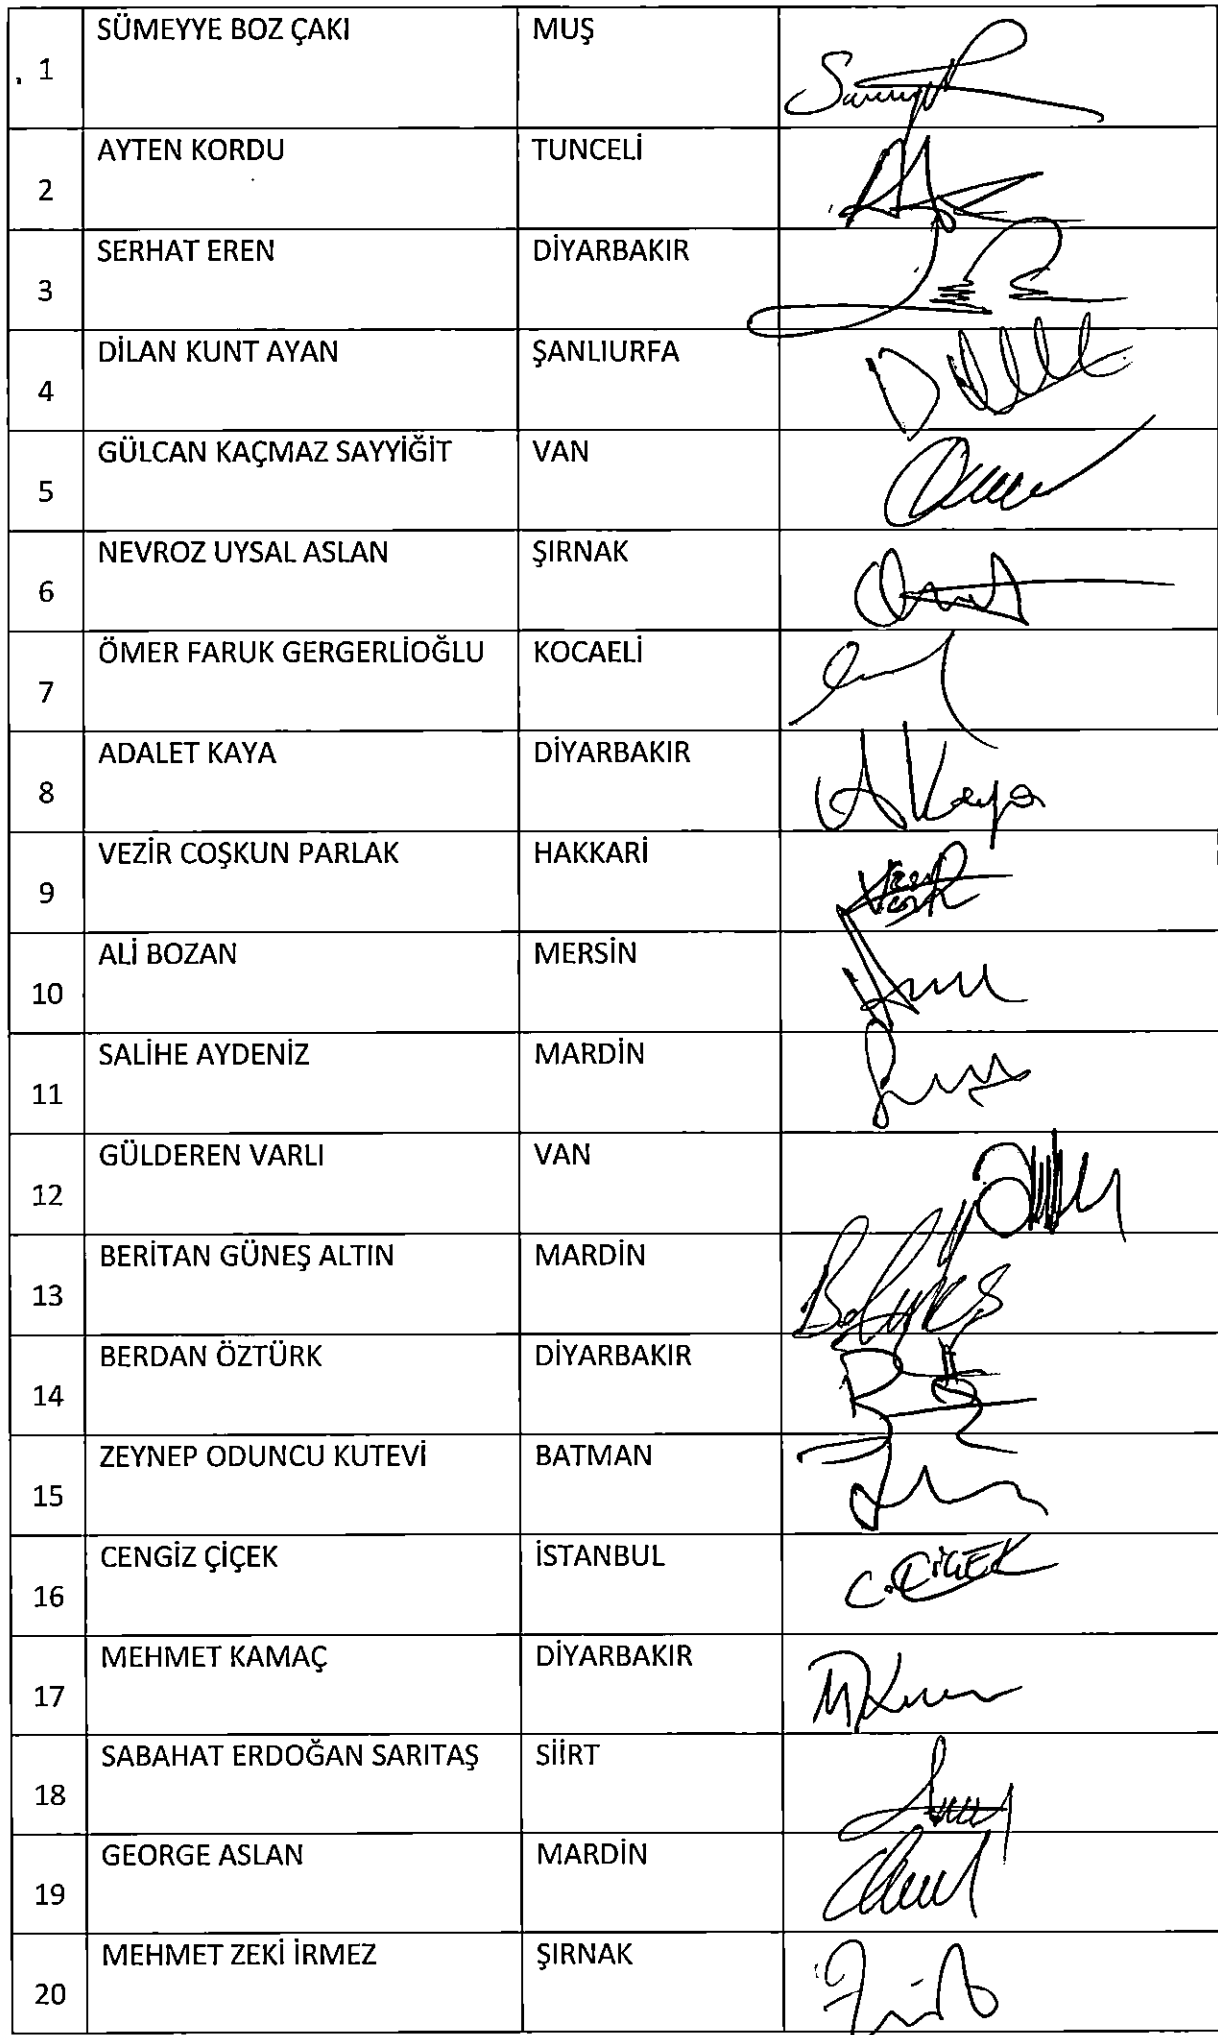 1 SÜMEYYE BOZ ÇAKI MUŞ
2 AYTEN KORDU TUNCELİ
3 SERHAT EREN DİYARBAKIR
4 DİLAN KUNT AYAN ŞANLIURFA
5 GÜLCAN KAÇMAZ SAYYİĞİT VAN
6 NEVROZ UYSAL ASLAN ŞIRNAK
7 ÖMER FARUK GERGERLİOĞLU KOCAELİ
8 ADALET KAYA DİYARBAKIR A Kaya
9 VEZİR COŞKUN PARLAK HAKKARİ
10 ALİ BOZAN MERSİN
11 SALİHE AYDENİZ MARDİN
12 GÜLDEREN VARLI VAN
13 BERİTAN GÜNEŞ ALTIN MARDİN
14 BERDAN ÖZTÜRK DİYARBAKIR
15 ZEYNEP ODUNCU KUTEVİ BATMAN
16 CENGİZ ÇİÇEK İSTANBUL C. ÇİÇEK
17 MEHMET KAMAÇ DİYARBAKIR
18 SABAHAT ERDOĞAN SARITAŞ SİİRT
19 GEORGE ASLAN MARDİN
20 MEHMET ZEKİ İRMEZ ŞIRNAK